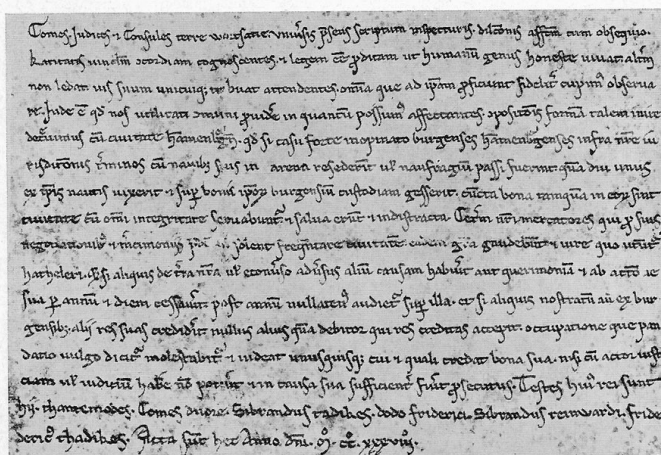 Comes. Judices ⁊ Consules terre wortsatie. vniuersis presens scriptum inspecturis. dilectionis affectum cum obsequio.
Karitatis vinculum concordiam cognoscentes. ⁊ legem esse proditam ut humanum genus honeste viuat. alterum
non ledat ius suum unicuique tribuat attendentes. omnia que ad ipsam proficiunt fideliter cupimus obserua
re. Inde est quod nos utilitati communi prouidere in quantum possumus affectantes. compositionis formam talem inire
decreuimus cum ciuitate hamenburgensi. quod si casu forte inopinato burgenses hamenburgenses infra nostre iu
risdictionis terminos cum nauibus suis in arena resederint uel naufragium passi fuerint. quam diu unus
ex ipsis nautis uixerit ⁊ super bona ipsorum burgensium custodiam gesserit. cuncta bona tamquam in eorum sint
ciuitate cum omni integritate seruabuntur. ⁊ salua erunt ⁊ indistracta. Ceterum nostri mercatores qui pro suis
negotiationibus ⁊ mercimoniis predictam uoluerint frequentare ciuitatem. eadem gratia gaudebunt ⁊ iure quo utuntur
hatheleri. Si aliquis de terra nostra uel econuerso aduersus alium causam habuerit aut querimoniam ⁊ ab actione
sua per annum ⁊ diem cessauerit. post annum nullatenus audietur super illa. et si aliquis nostratum aut ex bur
gensibus. alii res suas crediderit nullus alius quam debitor qui res creditas accepit. occupatione que pan
datio uulgo dicitur molestabitur. ⁊ uideat unusquisque cui ⁊ quali credat bona sua. nisi cum actor iusti
ciam uel iudicium habere non poterit ⁊ in causa sua sufficienter fuerit prosecutus. Testes huius rei sunt
hii. thantemodes. Comes duore. Sibrandus radikes. dodo friderici. Sibrandus reinwardi. fride
dericus thadikes. Acta sunt hec Anno domini. M. CC. xxxviii.